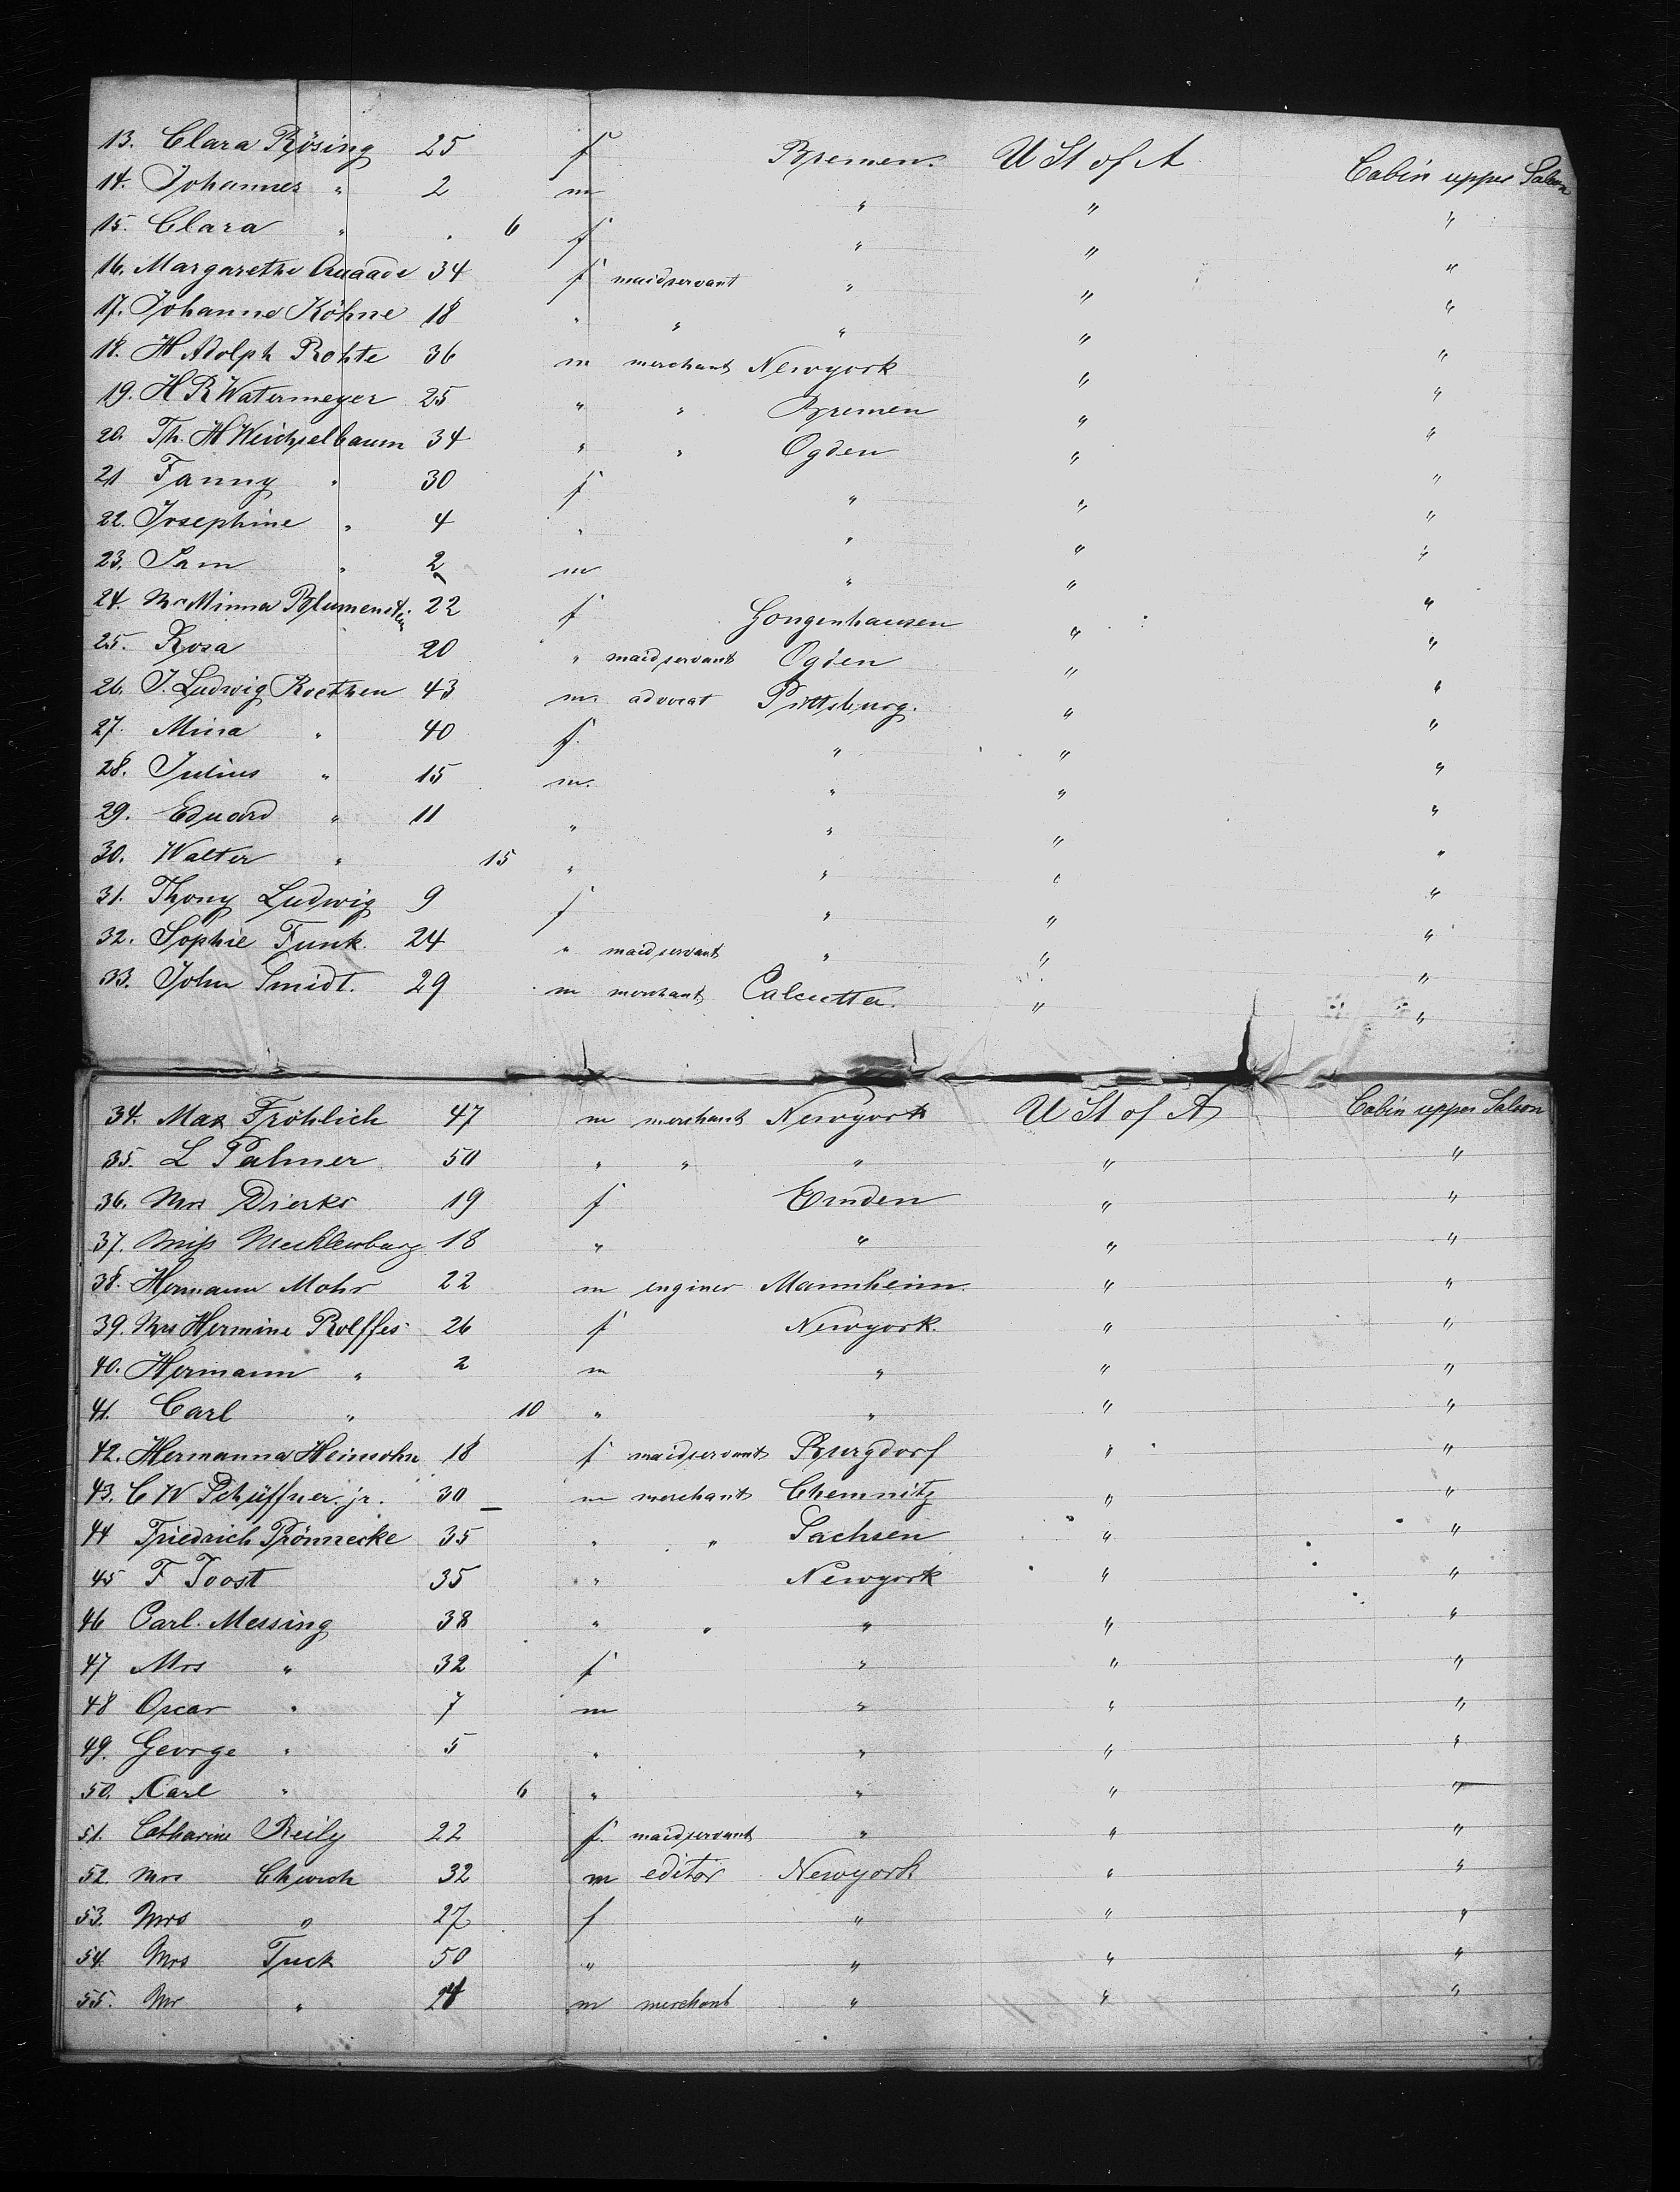 13. Clara Rösing 25 f Bremen. U St of A Cabin upper Saloon
14. Johannes " 2 m " " "
15. Clara " . 6 f " " "
16. Margarethe Quaade 34 f maidservant " " "
17. Johanne Köhne 18 " " " " "
18. H Adolph Rohte 36 m merchant Newyork " "
19. H R Watermeyer 25 " " Bremen " "
20. Th. H Weichselbaum 34 " " Ogden " "
21 Fanny " 30 f " " "
22. Josephine " 4 " " " "
23. Sam " 2 m " " "
24. Mrs Minna Blumenstein 22 f Gongenhausen " "
25. Rosa 20 " maidservant Ogden " "
26. J. Ludwig Roethen 43 m. advocat Pittsburg. " "
27. Mina " 40 f. " " "
28. Julius " 15 m. " " "
29. Eduard " 11 " " " "
30. Walter " 15 " " " "
31. Thony Ludwig 9 f " " "
32. Sophie Funk. 24 " maidservant " " "
33. John Smidt. 29 m merchant Calcutta. " "
34. Max Fröhlich 47 m merchant Newyork U St of A Cabin upper Saloon
35. L Palmer 50 " " " " "
36. Mrs Dierks 19 f Emden " "
37. Miss Mecklenburg 18 " " " "
38. Hermann Mohr 22 m enginer Mannheim. " "
39. Mrs Hermine Rolffes 26 f Newyork. " "
40. Hermann " 2 m " " "
41. Carl " 10 " " " "
42. Hermanna Heinsohn 18 f maidservant Burgdorf " "
43. C W Schüffner jr. 30 m merchant Chemnitz " "
44 Friedrich Prönnecke 35 " " Sachsen " "
45 F Joost 35 " Newyork " "
46 Carl. Messing 38 " " " " "
47 Mrs " 32 f " " "
48 Oscar " 7 m " " "
49. George " 5 " " " "
50. Karl " 6 " " " "
51. Catharine Reily 22 f. maidservant " " "
52. Mrs Church 32 m editor Newyork " "
53. Mrs " 27 f " " "
54. Mrs Tuck 50 " " " "
55. Mr " 24 m merchant " " "